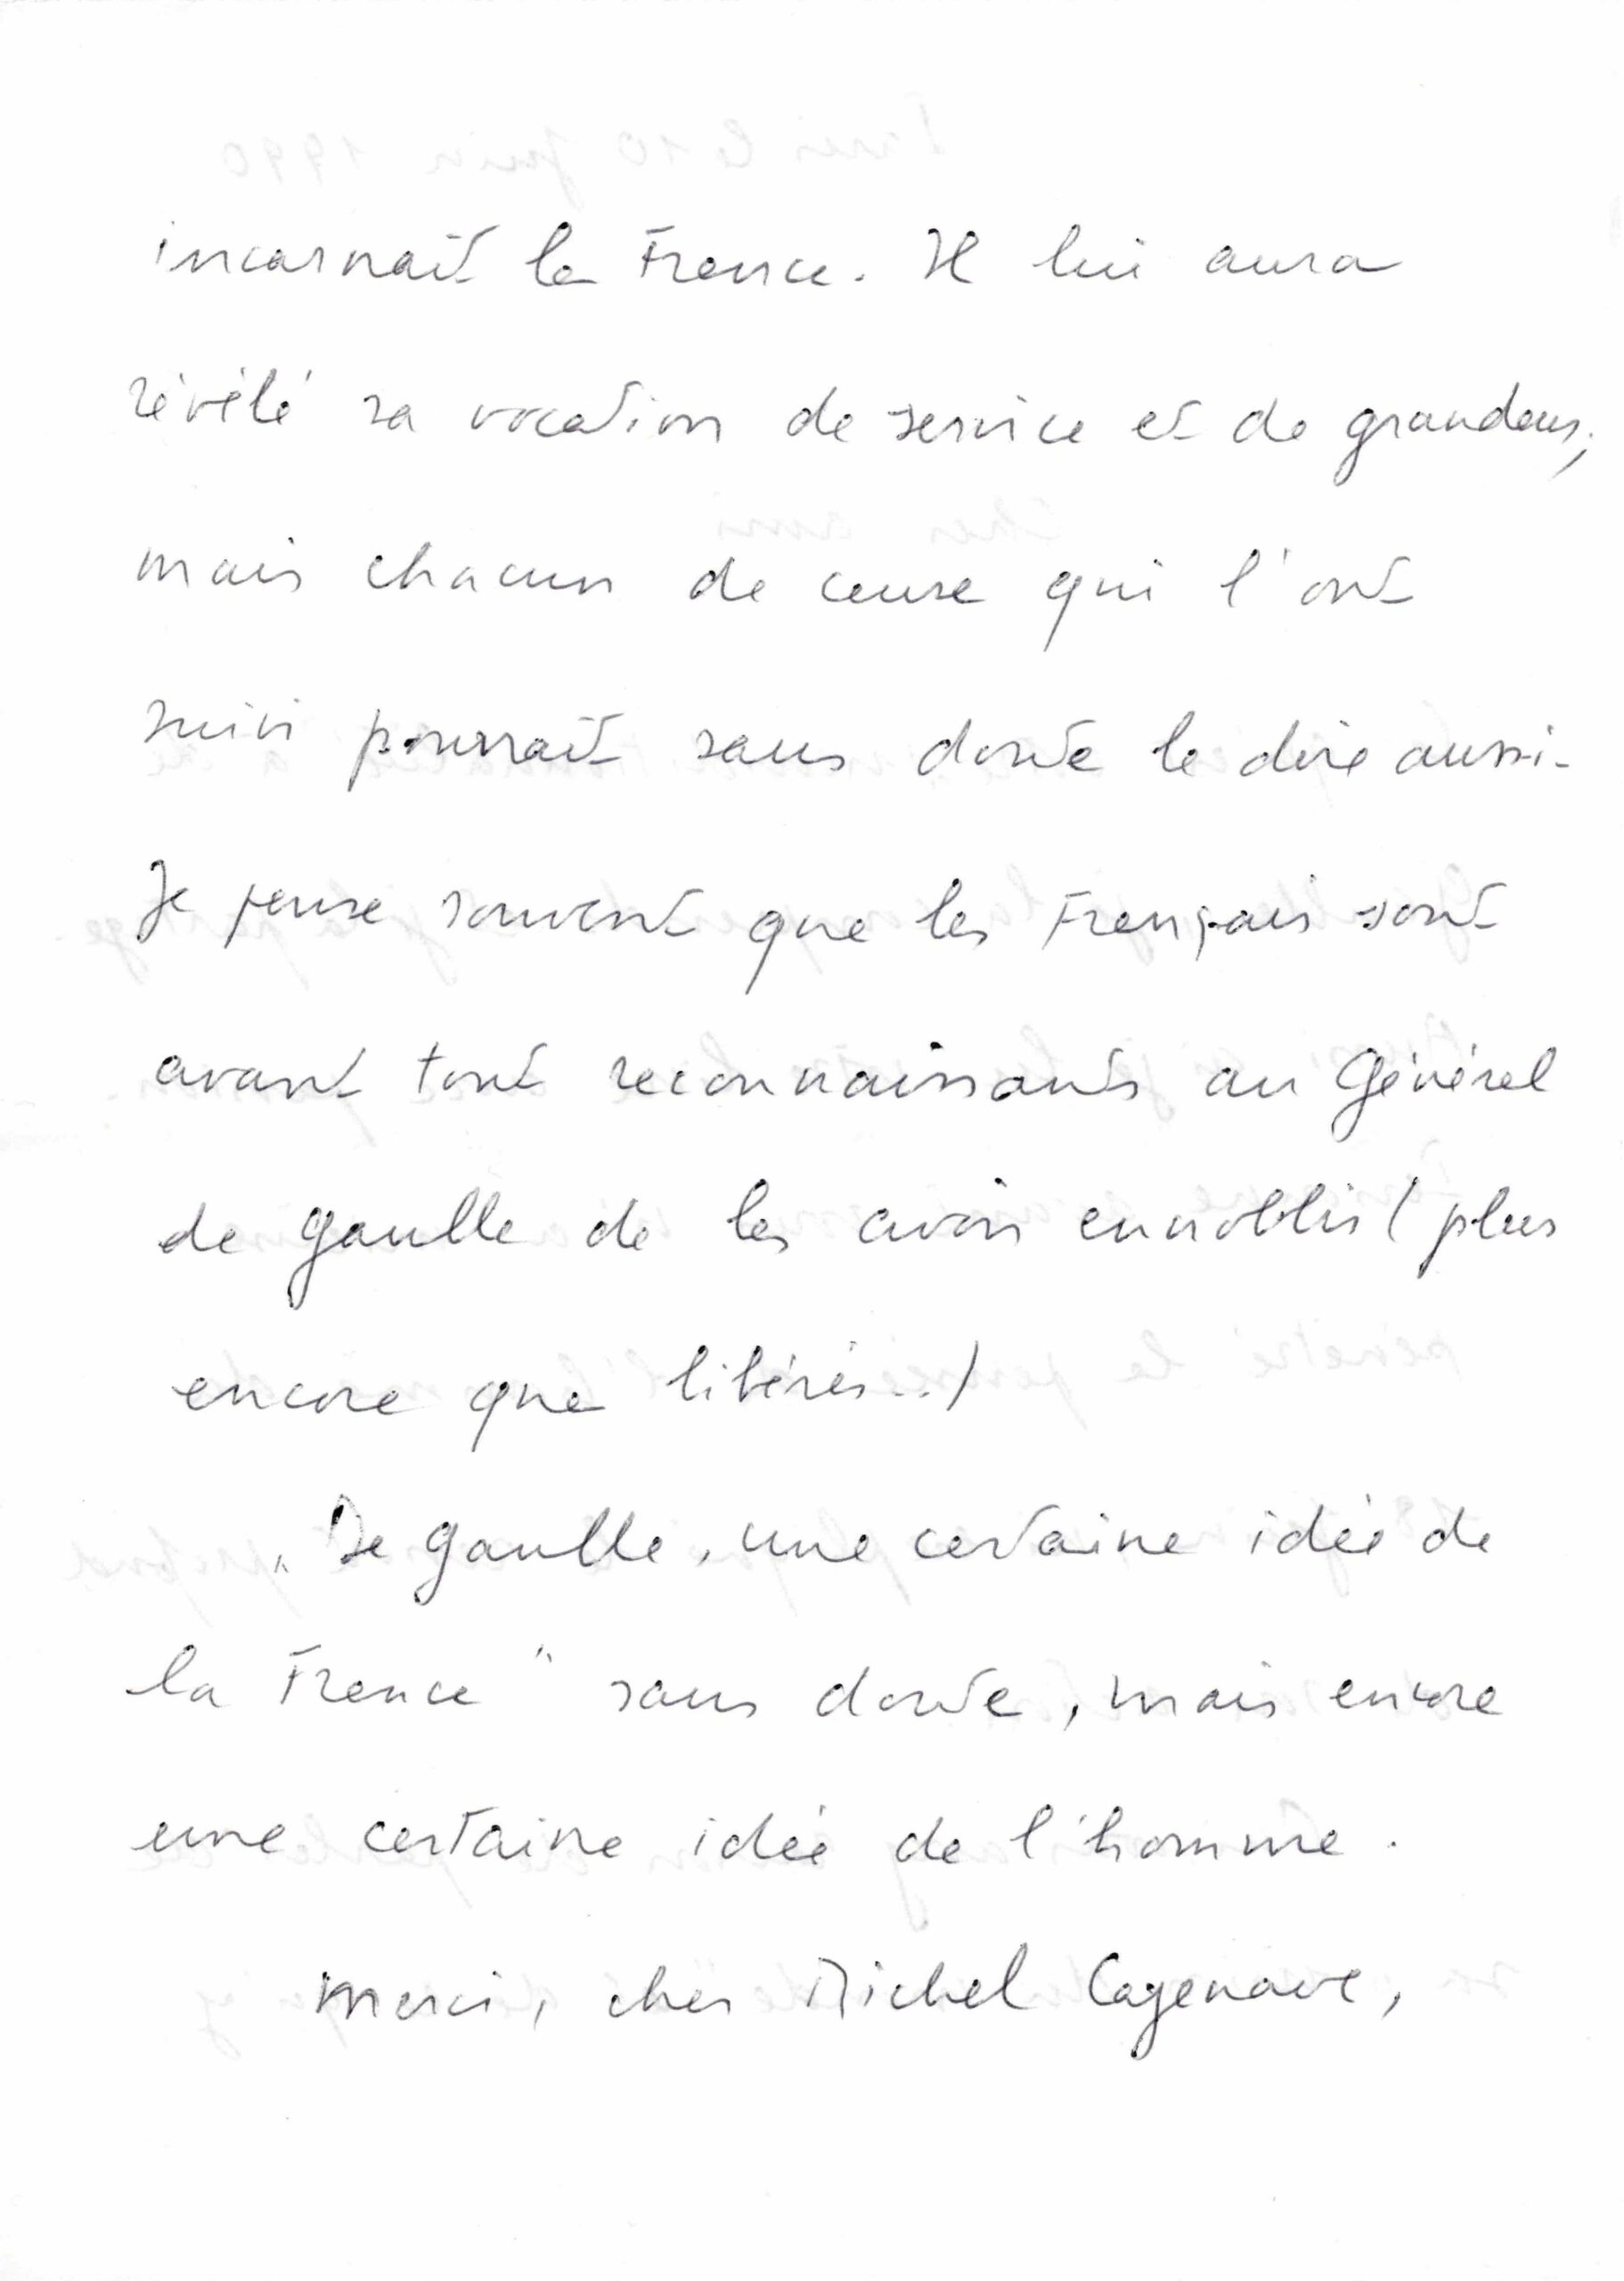 incarnait la France. Il lui aura
révélé sa vocation de service et de grandeur,
mais chacun de ceux qui l'ont
suivi pourrait sans doute le dire aussi.
Je pense souvent que les Français sont
avant tout reconnaissants au Général
de Gaulle de les avoir ennoblis (plus
encore que libérés..)
"De Gaulle, une certaine idée de
la France" sans doute, mais encore
une certaine idée de l'homme.
Merci, cher Michel Cazenave,